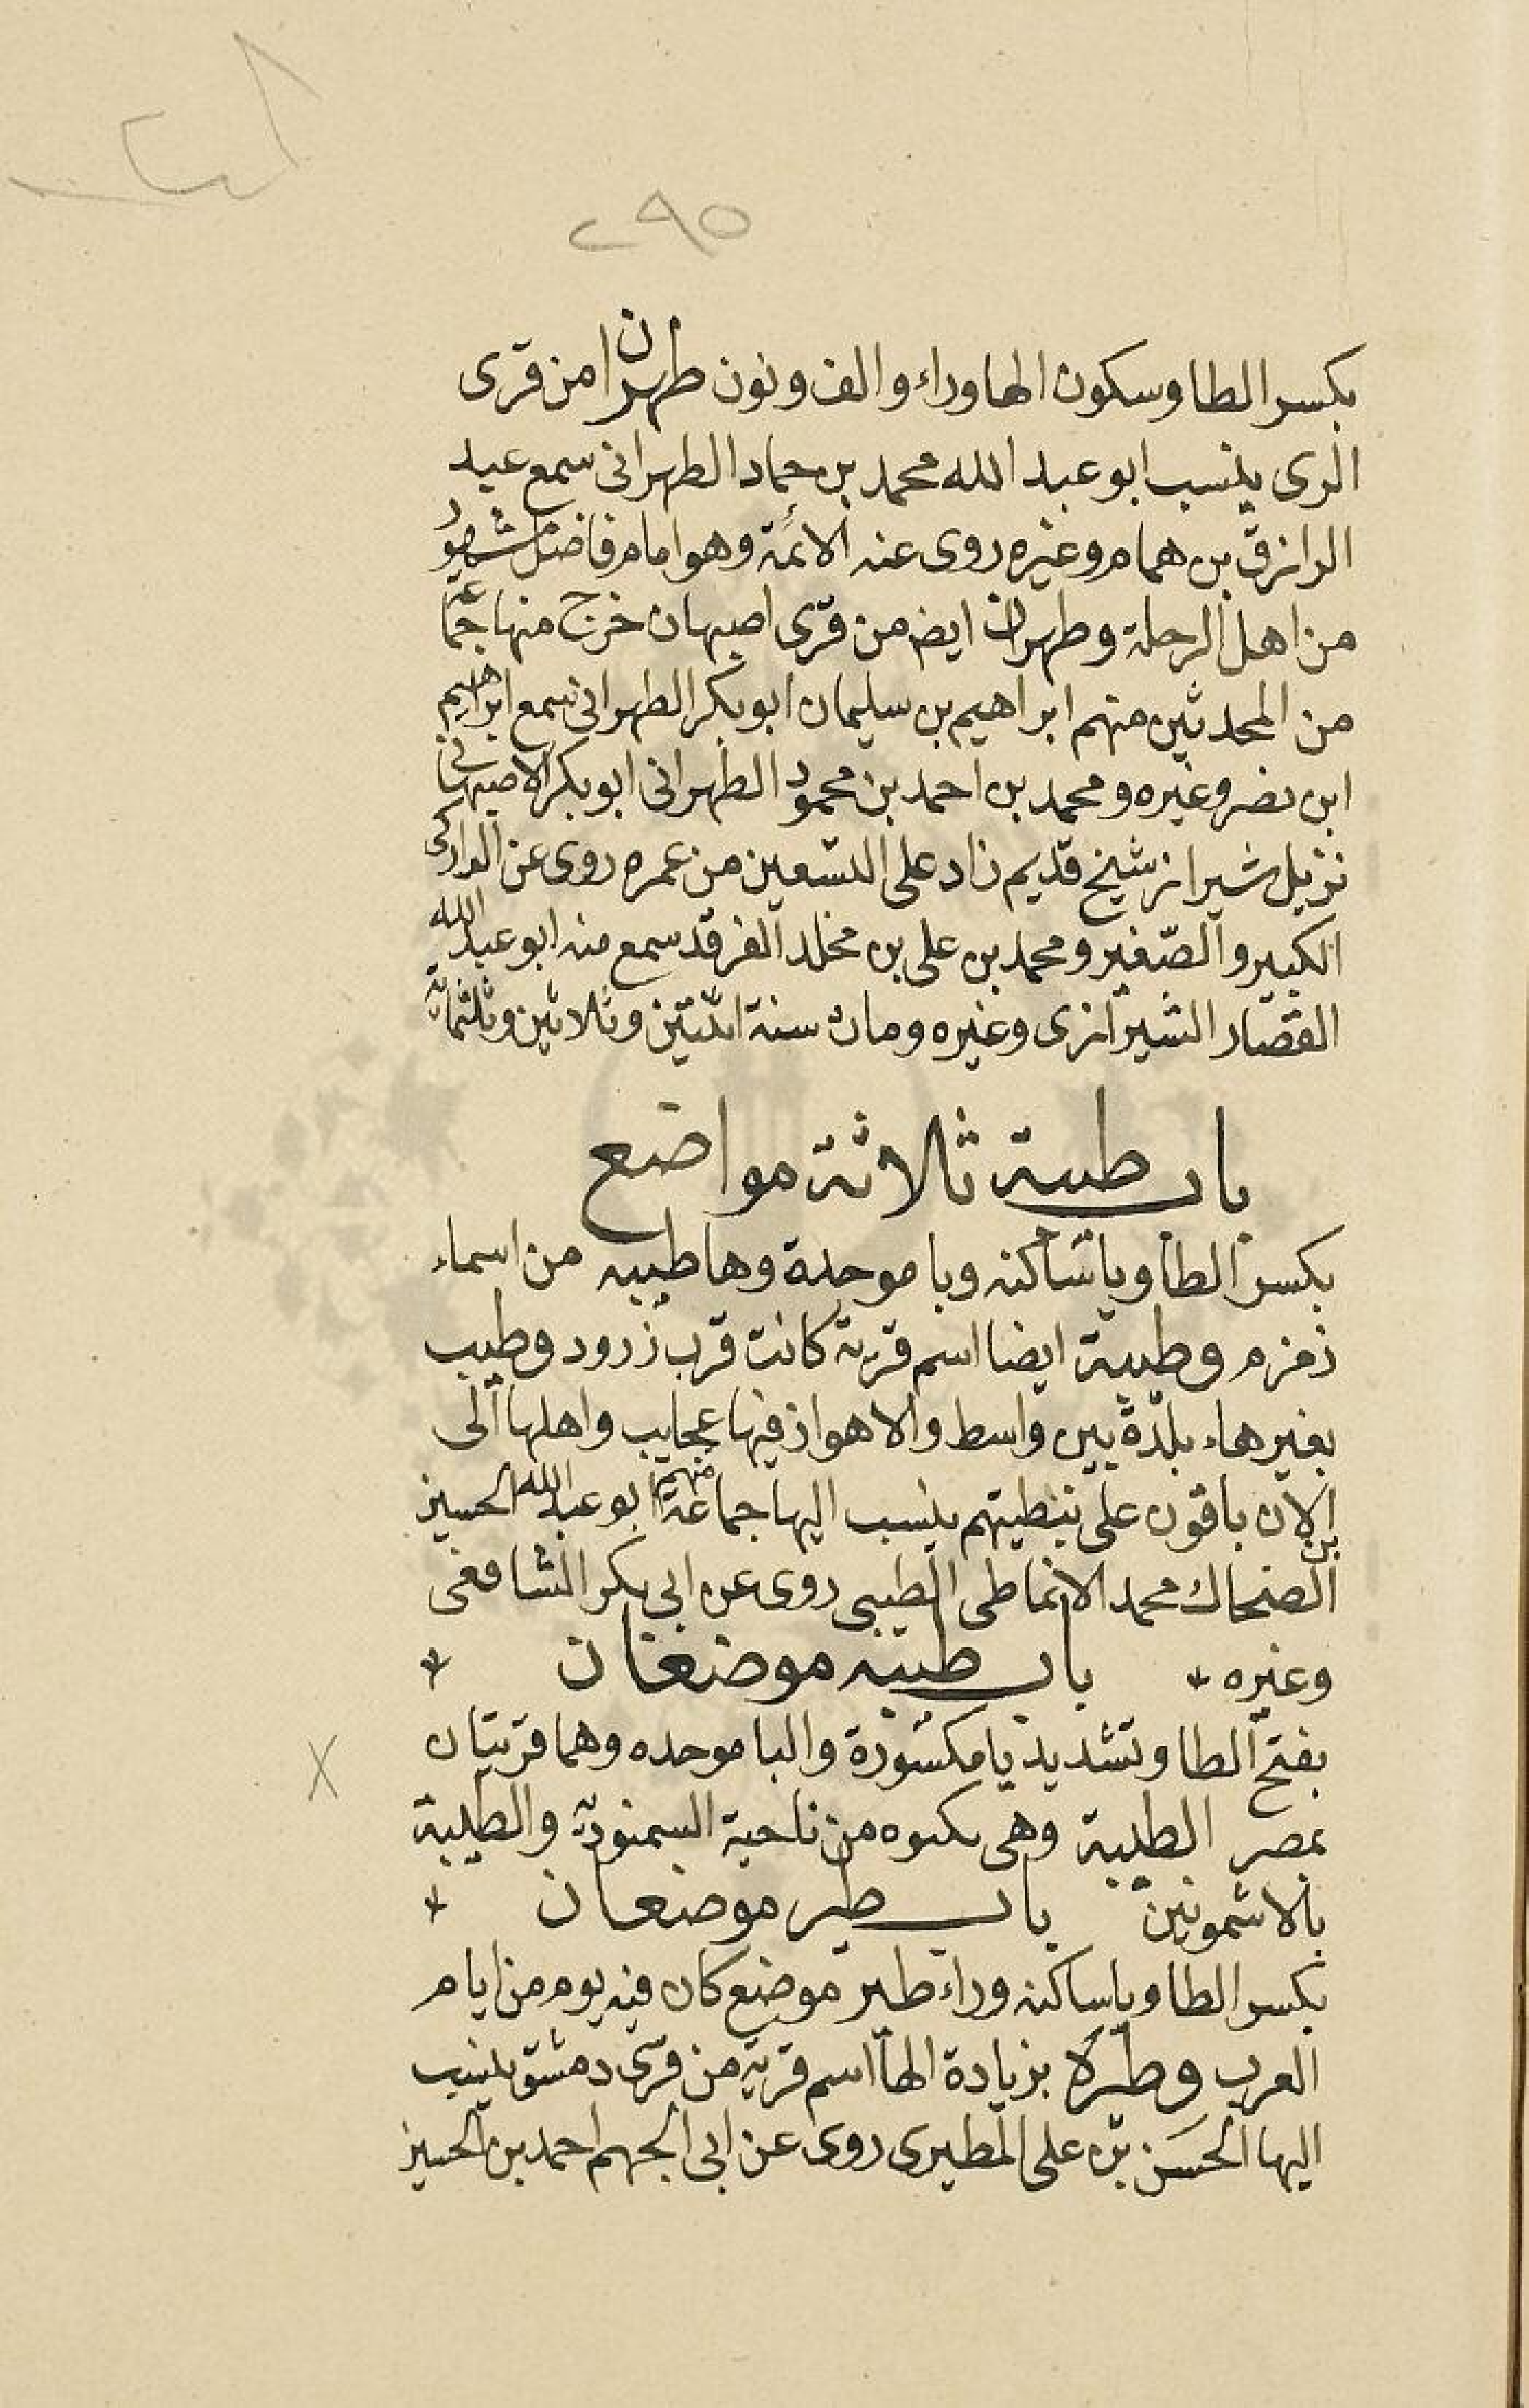 ٢٩٥
بكسر الطا وسكون الها وراء والف ونون طهران من قرى
الرى ينسب ابو عبد الله محمد بن حماد الطهرانى سمع عبد
الرازق بن همام وغيره روى عنه الائمة وهو امام فاضل مشهور
من اهل الرحلة وطهران ايض من قرى اصبهان خرج منها جماعة
من المحدثين منهم ابراهيم بن سليمان ابو بكر الطهرانى سمع ابراهيم
ابن نصر وغيره ومحمد بن احمد بن محمود الطهرانى ابو بكر الاصبهانى
نزيل شيراز شيخ قديم زاد على التسعين من عمره روى عن الداركى
الكبير والصغير ومحمد بن على بن مخلد الفرقد سمع منه ابو عبد الله
القصار الشيرازى وغيره ومات سنة اثنتين وثلاثين وثلثمائة
باب طيبة ثلاثة مواضع
بكسر الطا ويا ساكنه وبا موحدة وها طيبه من اسماء
زمزم وطيبة ايضا اسم قرية كانت قرب زرود وطيب
بغير هاء بلدة بين واسط والاهواز فيها عجايب واهلها الى
الان باقون على نبطيتهم ينسب اليها جماعة منهم ابو عبد الله الحسين
بن الضحاك محمد الانماطى الطيبى روى عن ابى بكر الشافعى
وغيره باب طيبه موضعان
بفتح الطا وتشديد يا مكسورة والبا موحده وهما قريتان
بمصر الطيبة وهى من ناحية السمنودية والطيبة
بالاشمونين باب طير موضعان
بكسر الطا ويا ساكنه وراء طير موضع كان فيه يوم من ايام
العرب وطيرة بزيادة الها اسم قرية من قرى دمشق ينسب
اليها الحسن بن على المطيرى روى عن ابى الجهم احمد بن الحسين